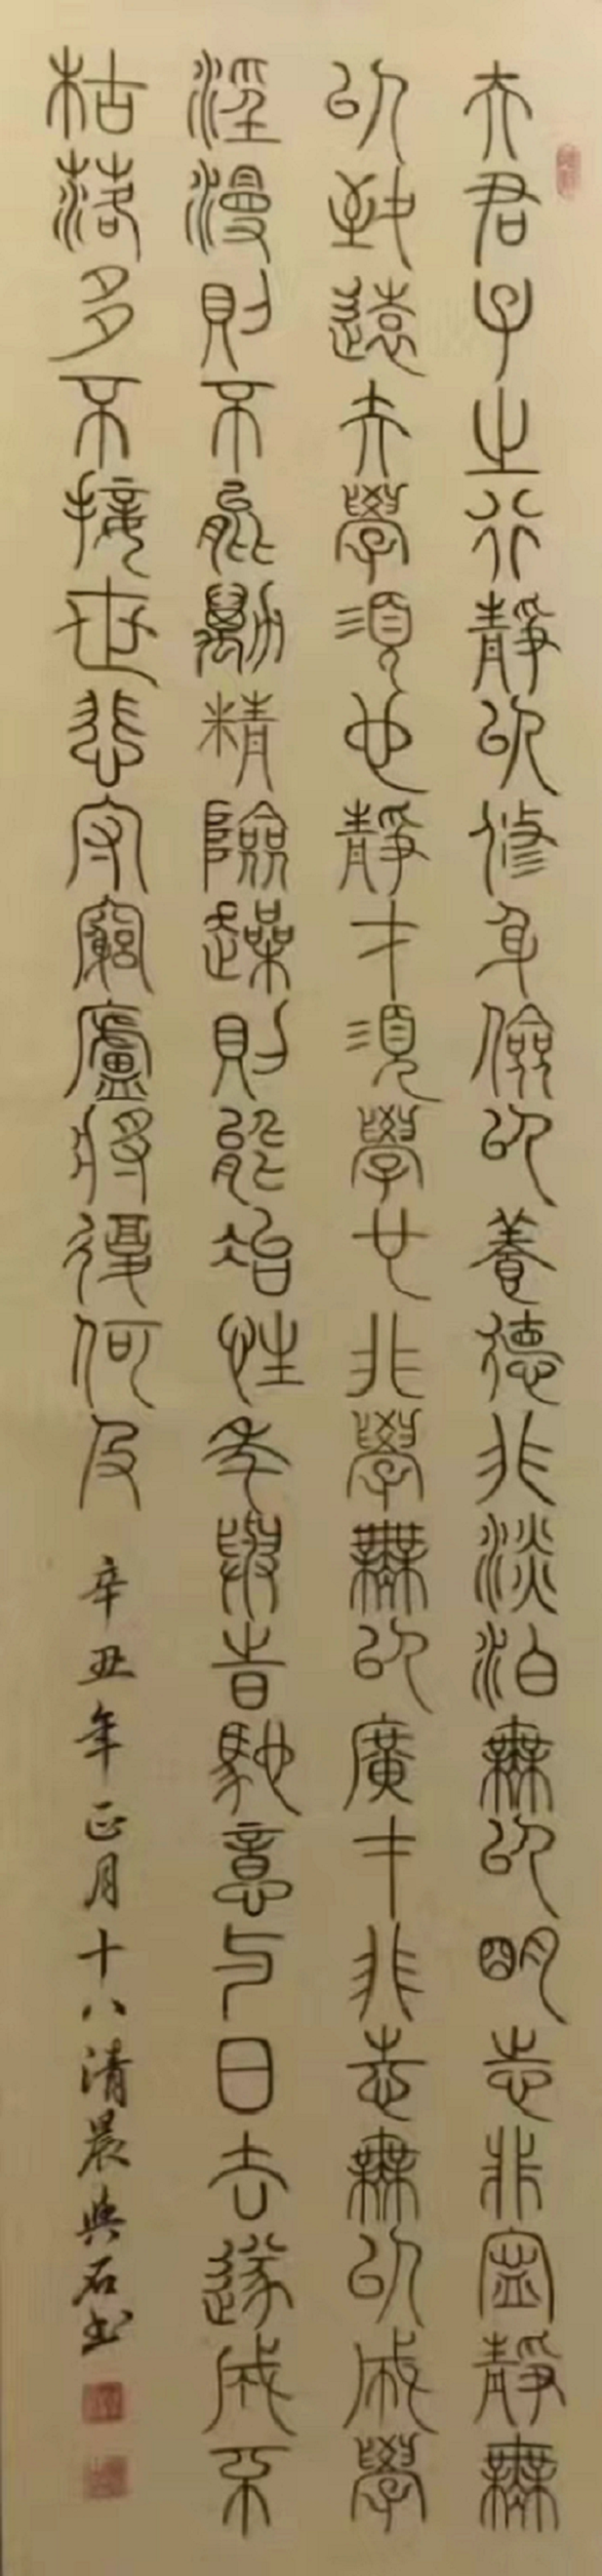 夫君子之行靜以修身儉以養德非淡泊無以明志非寧靜無
以致遠夫學須也靜才須學也非學無以廣才非志無以成學
淫漫則不能勵精險躁則能冶性年與時馳意与日去遂成
枯落多不接世悲守窮廬將復何及 辛丑年正月十八清晨石书